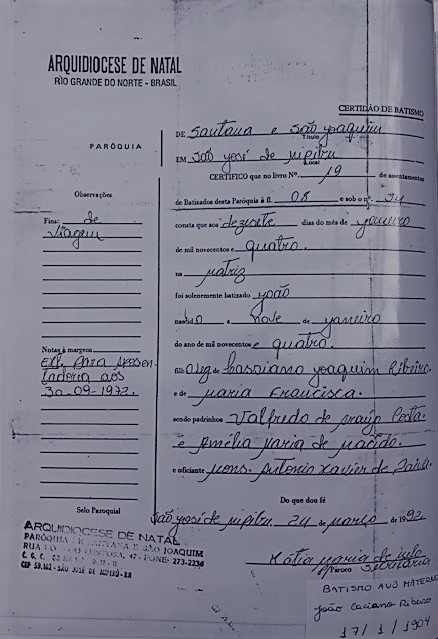 ARQUIDIOCESE DE NATAL
RIO GRANDE DO NORTE - BRASIL
CERTIDÃO DE BATISMO
PARÓQUIA
DE Santana e São Joaquim
Título
EM São José de Mipibu
Local
CERTIFICO que no livro Nº. 19 de assentamentos
de Batizados desta Paróquia à fl. 08 e sob o nº. 34
Observações
Fins: de
Viagem
consta que aos dezesete dias do mês de janeiro
de mil novecentos e quatro.
na matriz
foi solenemente batizado João
nascido a nove de janeiro
do ano de mil novecentos e quatro.
Notas à margem
Ext. para aposen-
tadoria aos
30-09-1972.
filh o leg. de Cassiano Joaquim Ribeiro
e de Maria Francisca.
sendo padrinhos Valfredo de Araújo Costa
e Amélia Maria de Macêdo.
e oficiante Mons. Antonio Xavier de Paiva.
Do que dou fé
Selo Paroquial
São José de Mipibu, 24 de março de 1992
ARQUIDIOCESE DE NATAL
PARÓQUIA SANTANA E SÃO JOAQUIM
RUA 47 - FONE: 273-2236
C. G. C.
CEP 59.162 - SÃO JOSÉ DE MIPIBÚ - RN
Kátia Maria de Melo
Pároco Secretária
BATISMO AVÔ MATERNO
João Caciano Ribeiro
17/1/1904